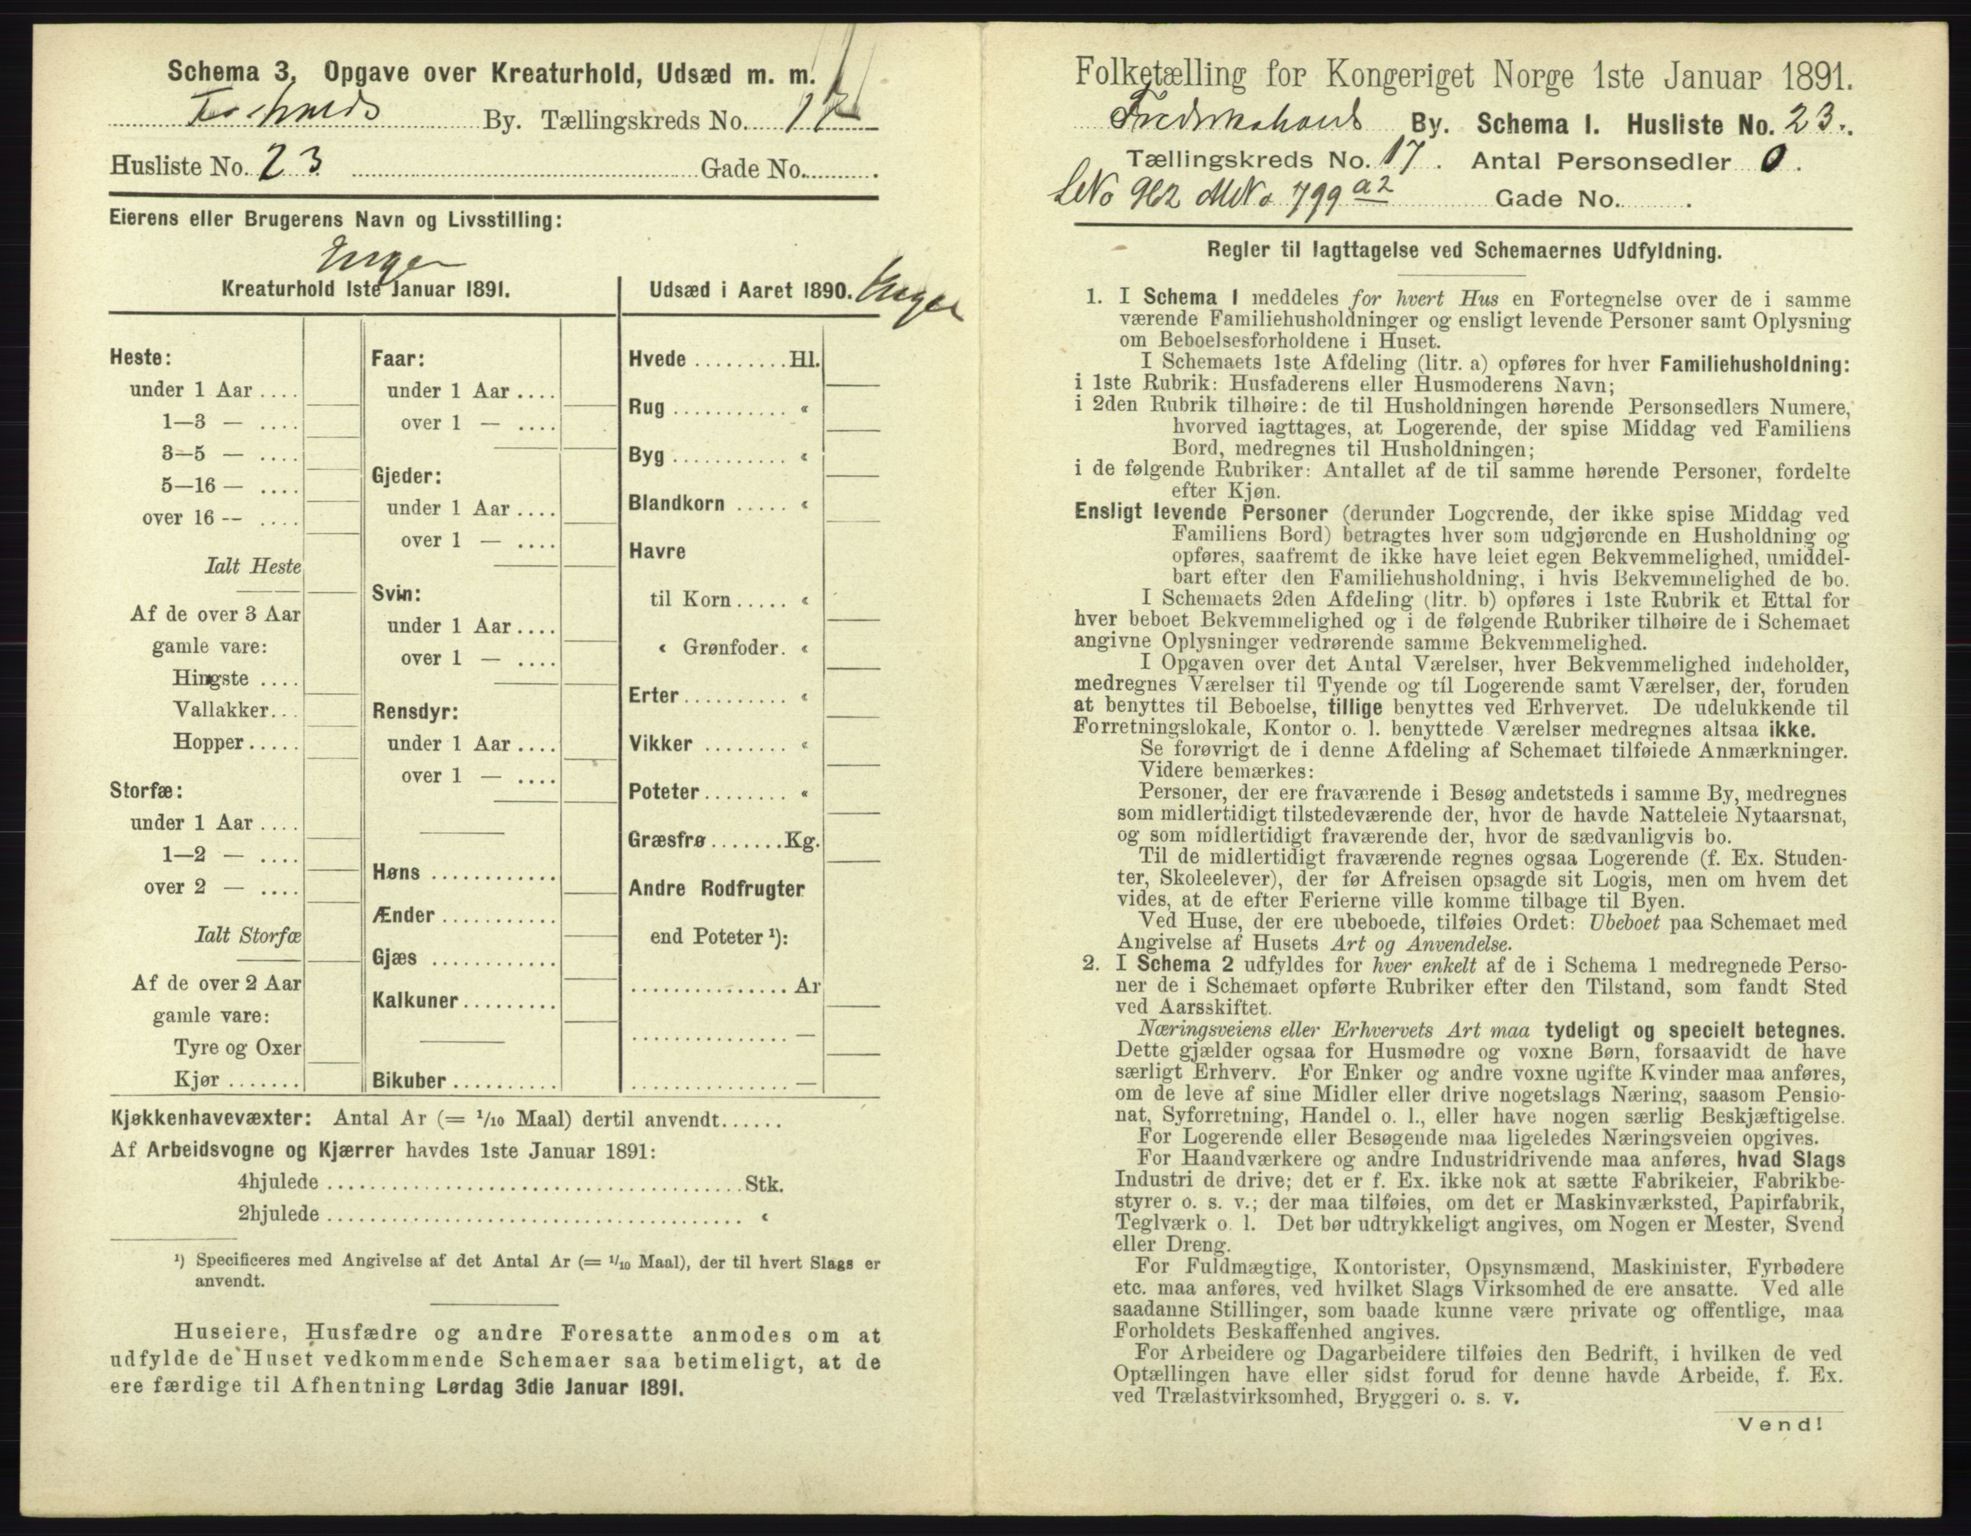 Schema 3, Opgave over Kreaturhold, Udsæd m. m.
Fr.halds By. Tællingskreds No. 17
Husliste No. 23 Gade No.
Eierens eller Brugerens Navn og Livsstilling:
Inger
Kreaturhold 1ste Januar 1891.
Heste:
under 1 Aar ....
1—3 — ....
3—5 — ....
5—16 — ....
over 16 -- ....
Ialt Heste
Af de over 3 Aar
gamle vare:
Hingste ....
Vallakker...
Hopper.....
Storfæ:
under 1 Aar ....
1—2 — ....
over 2 — ....
Ialt Storfæ
Af de over 2 Aar
gamle vare:
Tyre og Oxer
Kjør .......
Faar:
under 1 Aar ....
over 1 — ....
Gjeder:
under 1 Aar ....
over 1 — ....
Svin:
under 1 Aar ....
over 1 — ....
Rensdyr:
under 1 Aar ....
over 1 — ....
Høns ............
Ænder ...........
Gjæs ............
Kalkuner.........
Bikuber ..........
Udsæd i Aaret 1890. Inger
Hvede .........Hl.
Rug ........... «
Byg ........... «
Blandkorn ..... «
Havre
til Korn ..... «
« Grønfoder. «
Erter .......... «
Vikker ........ «
Poteter........ «
Græsfrø .......Kg.
Andre Rodfrugter
end Poteter ¹):
............... Ar
............... —
............... —
Kjøkkenhavevæxter: Antal Ar (= 1/10 Maal) dertil anvendt......
Af Arbeidsvogne og Kjærrer havdes 1ste Januar 1891:
4hjulede ........................................Stk.
2hjulede ........................................ «
¹) Specificeres med Angivelse af det Antal Ar (= 1/10 Maal), der til hvert Slags er
anvendt.
Huseiere, Husfædre og andre Foresatte anmodes om at
udfylde de Huset vedkommende Schemaer saa betimeligt, at de
ere færdige til Afhentning Lørdag 3die Januar 1891.
Folketælling for Kongeriget Norge 1ste Januar 1891.
Fredrikshalds By. Schema I. Husliste No. 23.
Tællingskreds No. 17. Antal Personsedler 0.
LNo 962 MNo 799 a2 Gade No. .
Regler til Iagttagelse ved Schemaernes Udfyldning.
1. I Schema 1 meddeles for hvert Hus en Fortegnelse over de i samme
værende Familiehusholdninger og ensligt levende Personer samt Oplysning
om Beboelsesforholdene i Huset.
I Schemaets 1ste Afdeling (litr. a) opføres for hver Familiehusholdning:
i 1ste Rubrik: Husfaderens eller Husmoderens Navn;
i 2den Rubrik tilhøire: de til Husholdningen hørende Personsedlers Numere,
hvorved iagttages, at Logerende, der spise Middag ved Familiens
Bord, medregnes til Husholdningen;
i de følgende Rubriker: Antallet af de til samme hørende Personer, fordelte
efter Kjøn.
Ensligt levende Personer (derunder Logerende, der ikke spise Middag ved
Familiens Bord) betragtes hver som udgjørende en Husholdning og
opføres, saafremt de ikke have leiet egen Bekvemmelighed, umiddel-
bart efter den Familiehusholdning, i hvis Bekvemmelighed de bo.
I Schemaets 2den Afdeling (litr. b) opføres i 1ste Rubrik et Ettal for
hver beboet Bekvemmelighed og i de følgende Rubriker tilhøire de i Schemaet
angivne Oplysninger vedrørende samme Bekvemmelighed.
I Opgaven over det Antal Værelser, hver Bekvemmelighed indeholder,
medregnes Værelser til Tyende og til Logerende samt Værelser, der, foruden
at benyttes til Beboelse, tillige benyttes ved Erhvervet. De udelukkende til
Forretningslokale, Kontor o. l. benyttede Værelser medregnes altsaa ikke.
Se forøvrigt de i denne Afdeling af Schemaet tilføiede Anmærkninger.
Videre bemærkes:
Personer, der ere fraværende i Besøg andetsteds i samme By, medregnes
som midlertidigt tilstedeværende der, hvor de havde Natteleie Nytaarsnat,
og som midlertidigt fraværende der, hvor de sædvanligvis bo.
Til de midlertidigt fraværende regnes ogsaa Logerende (f. Ex. Studen-
ter, Skoleelever), der før Afreisen opsagde sit Logis, men om hvem det
vides, at de efter Ferierne ville komme tilbage til Byen.
Ved Huse, der ere ubeboede, tilføies Ordet: Ubeboet paa Schemaet med
Angivelse af Husets Art og Anvendelse.
2. I Schema 2 udfyldes for hver enkelt af de i Schema 1 medregnede Perso-
ner de i Schemaet opførte Rubriker efter den Tilstand, som fandt Sted
ved Aarsskiftet.
Næringsveiens eller Erhvervets Art maa tydeligt og specielt betegnes.
Dette gjælder ogsaa for Husmødre og voxne Børn, forsaavidt de have
særligt Erhverv. For Enker og andre voxne ugifte Kvinder maa anføres,
om de leve af sine Midler eller drive nogetslags Næring, saasom Pensio-
nat, Syforretning, Handel o. l., eller have nogen særlig Beskjæftigelse.
For Logerende eller Besøgende maa ligeledes Næringsveien opgives.
For Haandværkere og andre Industridrivende maa anføres, hvad Slags
Industri de drive; det er f. Ex. ikke nok at sætte Fabrikeier, Fabrikbe-
styrer o. s. v.; der maa tilføies, om det er Maskinværksted, Papirfabrik,
Teglværk o. l. Det bør udtrykkeligt angives, om Nogen er Mester, Svend
eller Dreng.
For Fuldmægtige, Kontorister, Opsynsmænd, Maskinister, Fyrbødere
etc. maa anføres, ved hvilket Slags Virksomhed de ere ansatte. Ved alle
saadanne Stillinger, som baade kunne være private og offentlige, maa
Forholdets Beskaffenhed angives.
For Arbeidere og Dagarbeidere tilføies den Bedrift, i hvilken de ved
Optællingen have eller sidst forud for denne havde Arbeide, f. Ex.
ved Trælastvirksomhed, Bryggeri o. s. v.
Vend!